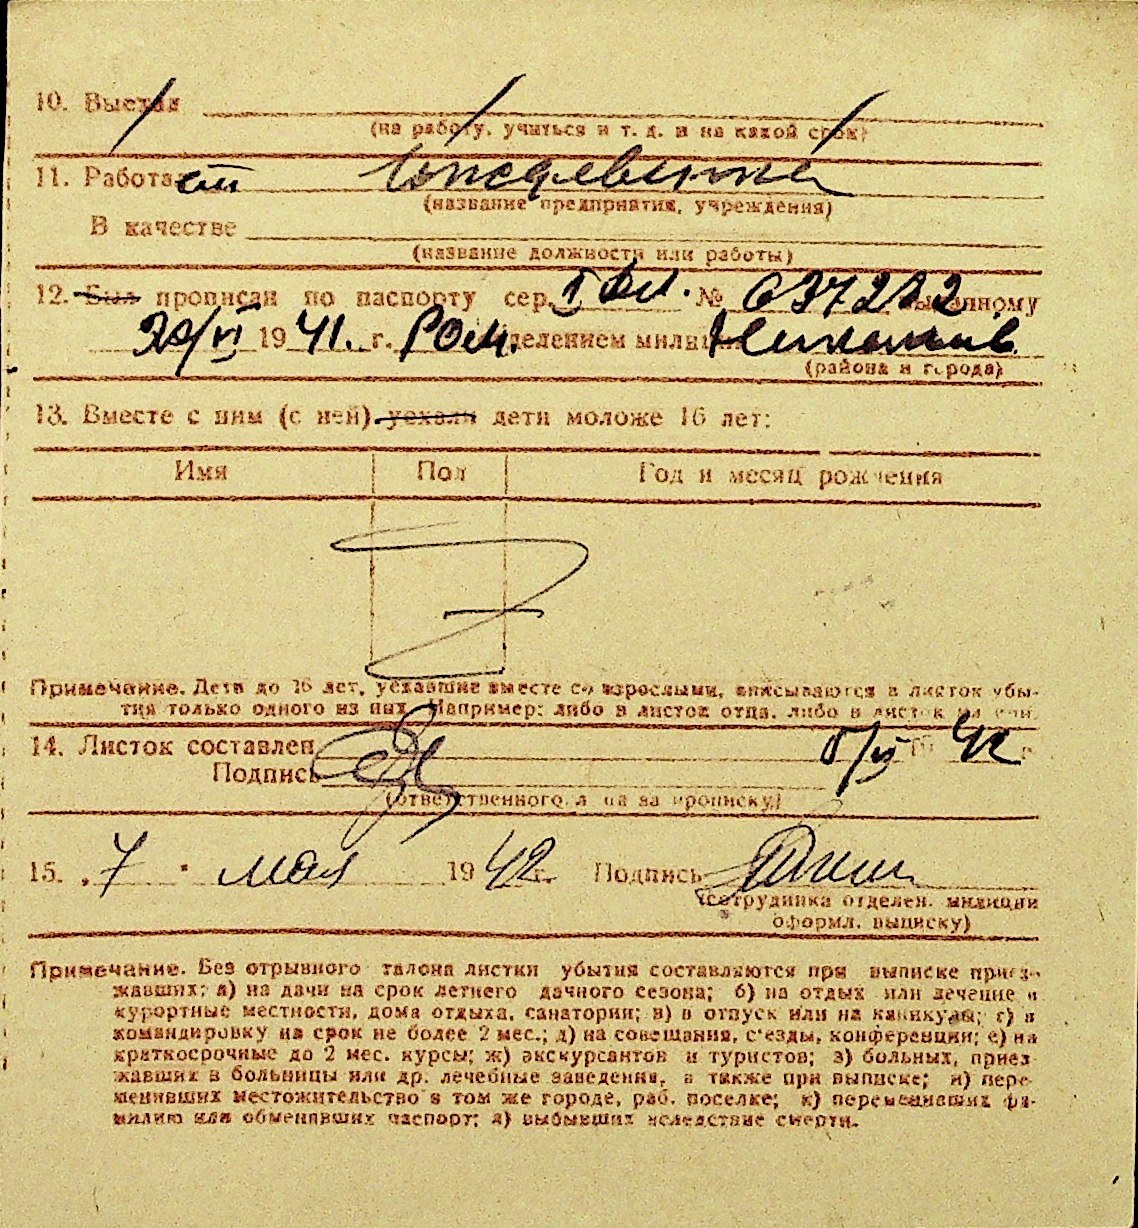 10. Выехал
(на работу, учиться и т. д. и на какой срок)
11. Работает иждевенка
(название предприятия, учреждения)
В качестве
(название должности или работы)
12. Был прописан по паспорту сер. № выданному
1941. г. РОМ. отделением милиции
(района и города)
13. Вместе с ним (с ней) уехали дети моложе 16 лет:
Имя Пол Год и месяц рождения
Примечание. Дети до 16 лет, уехавшие вместе со взрослыми, вписываются в листок убы-
тия только одного из них. Например: либо в листок отца, либо в листок матери.
14. Листок составлен 19 42 г.
Подпись
(ответственного лица за прописку)
15. „7" мая 1942 г. Подпись
(сотрудника отделен. милиции
оформл. выписку)
Примечание. Без отрывного талона листки убытия составляются при выписке приез-
жавших: а) на дачи на срок летнего дачного сезона; б) на отдых или лечение в
курортные местности, дома отдыха, санатории; в) в отпуск или на каникулы; г) в
командировку на срок не более 2 мес.; д) на совещания, с'езды, конференции; е) на
краткосрочные до 2 мес. курсы; ж) экскурсантов и туристов; з) больных, приез-
жавших в больницы или др. лечебные заведения, а также при выписке; и) пере-
менивших местожительство в том же городе, раб. поселке; к) переменивших фа-
милию или обменявших паспорт; л) выбывших вследствие смерти.